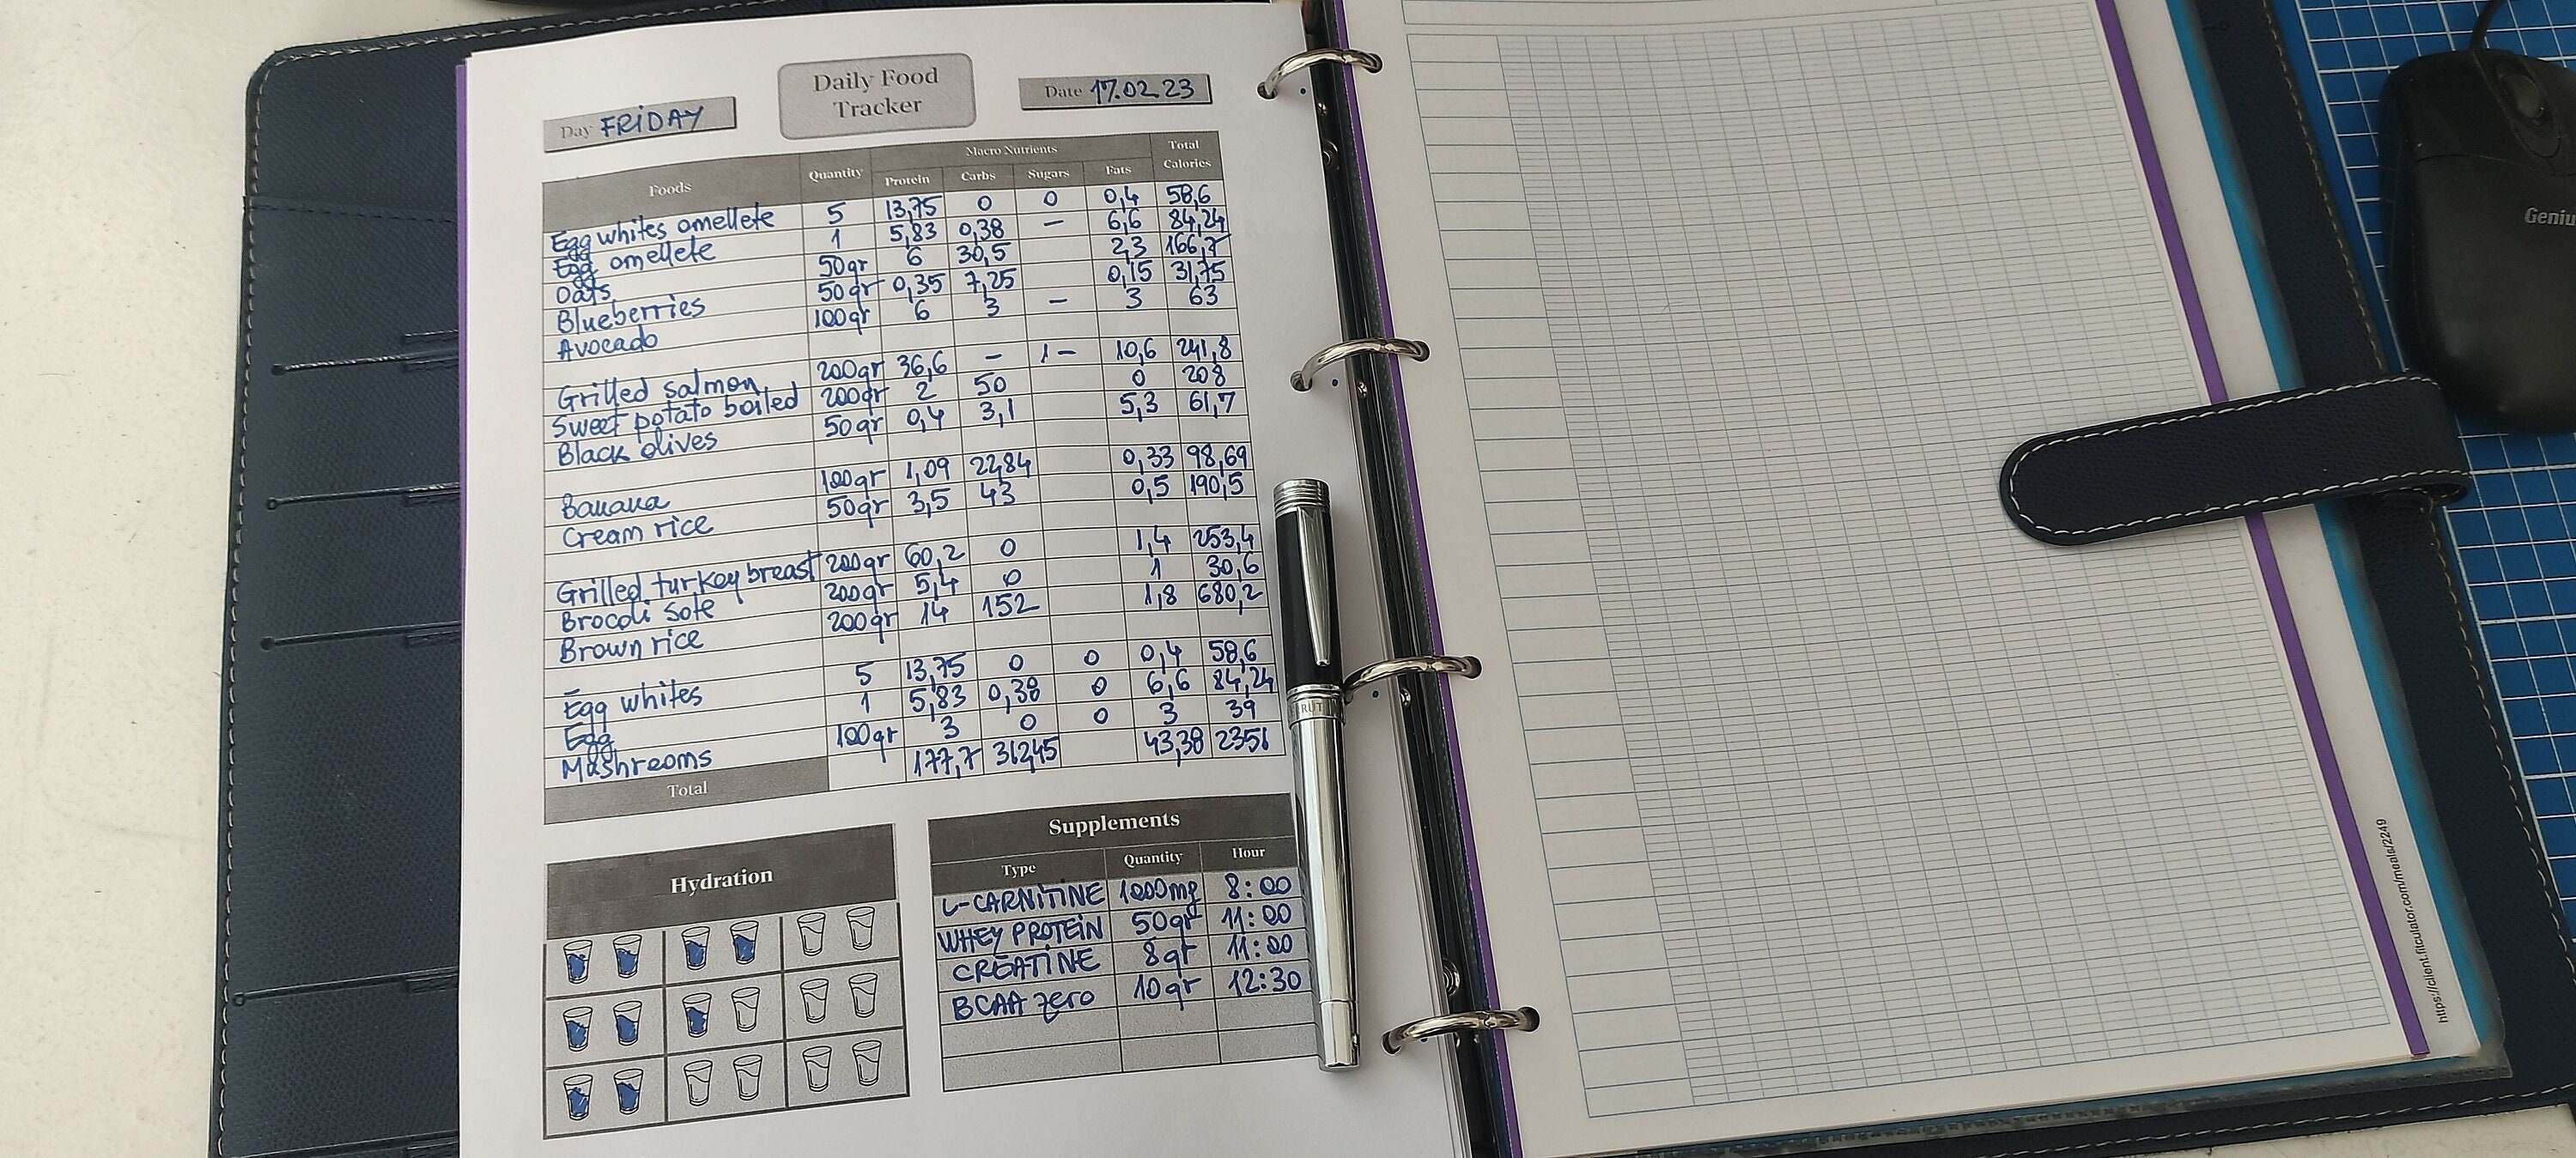 Daily Food
Tracker
Day FRIDAY
Date 17.02.23
Foods Quantity Macro Nutrients Total Calories
Protein Carbs Sugars Fats
Egg whites omellete 5 13,75 0 0 0,4 58,6
Egg omellete 1 5,83 0,38 – 6,6 84,24
Oats 50gr 6 30,5 2,3 166,7
Blueberries 50gr 0,35 7,25 0,15 31,75
Avocado 100gr 6 3 – 3 63
Grilled salmon 200gr 36,6 – 1– 10,6 241,8
Sweet potato boiled 200gr 2 50 0 208
Black olives 50gr 0,4 3,1 5,3 61,7
Banana 100gr 1,09 22,84 0,33 98,69
Cream rice 50gr 3,5 43 0,5 190,5
Grilled turkey breast 200gr 60,2 0 1,4 253,4
Brocoli sote 200gr 5,4 0 1 30,6
Brown rice 200gr 14 152 1,8 680,2
Egg whites 5 13,75 0 0 0,4 58,6
Egg 1 5,83 0,38 0 6,6 84,24
Mushrooms 100gr 3 0 0 3 39
Total 177,7 312,45 43,38 2351
Hydration
Supplements
Type Quantity Hour
L-CARNITINE 1000mg 8:00
WHEY PROTEIN 50gr 11:00
CREATINE 8gr 11:00
BCAA zero 10gr 12:30
https://client.fitculator.com/meals/2249
Geniu